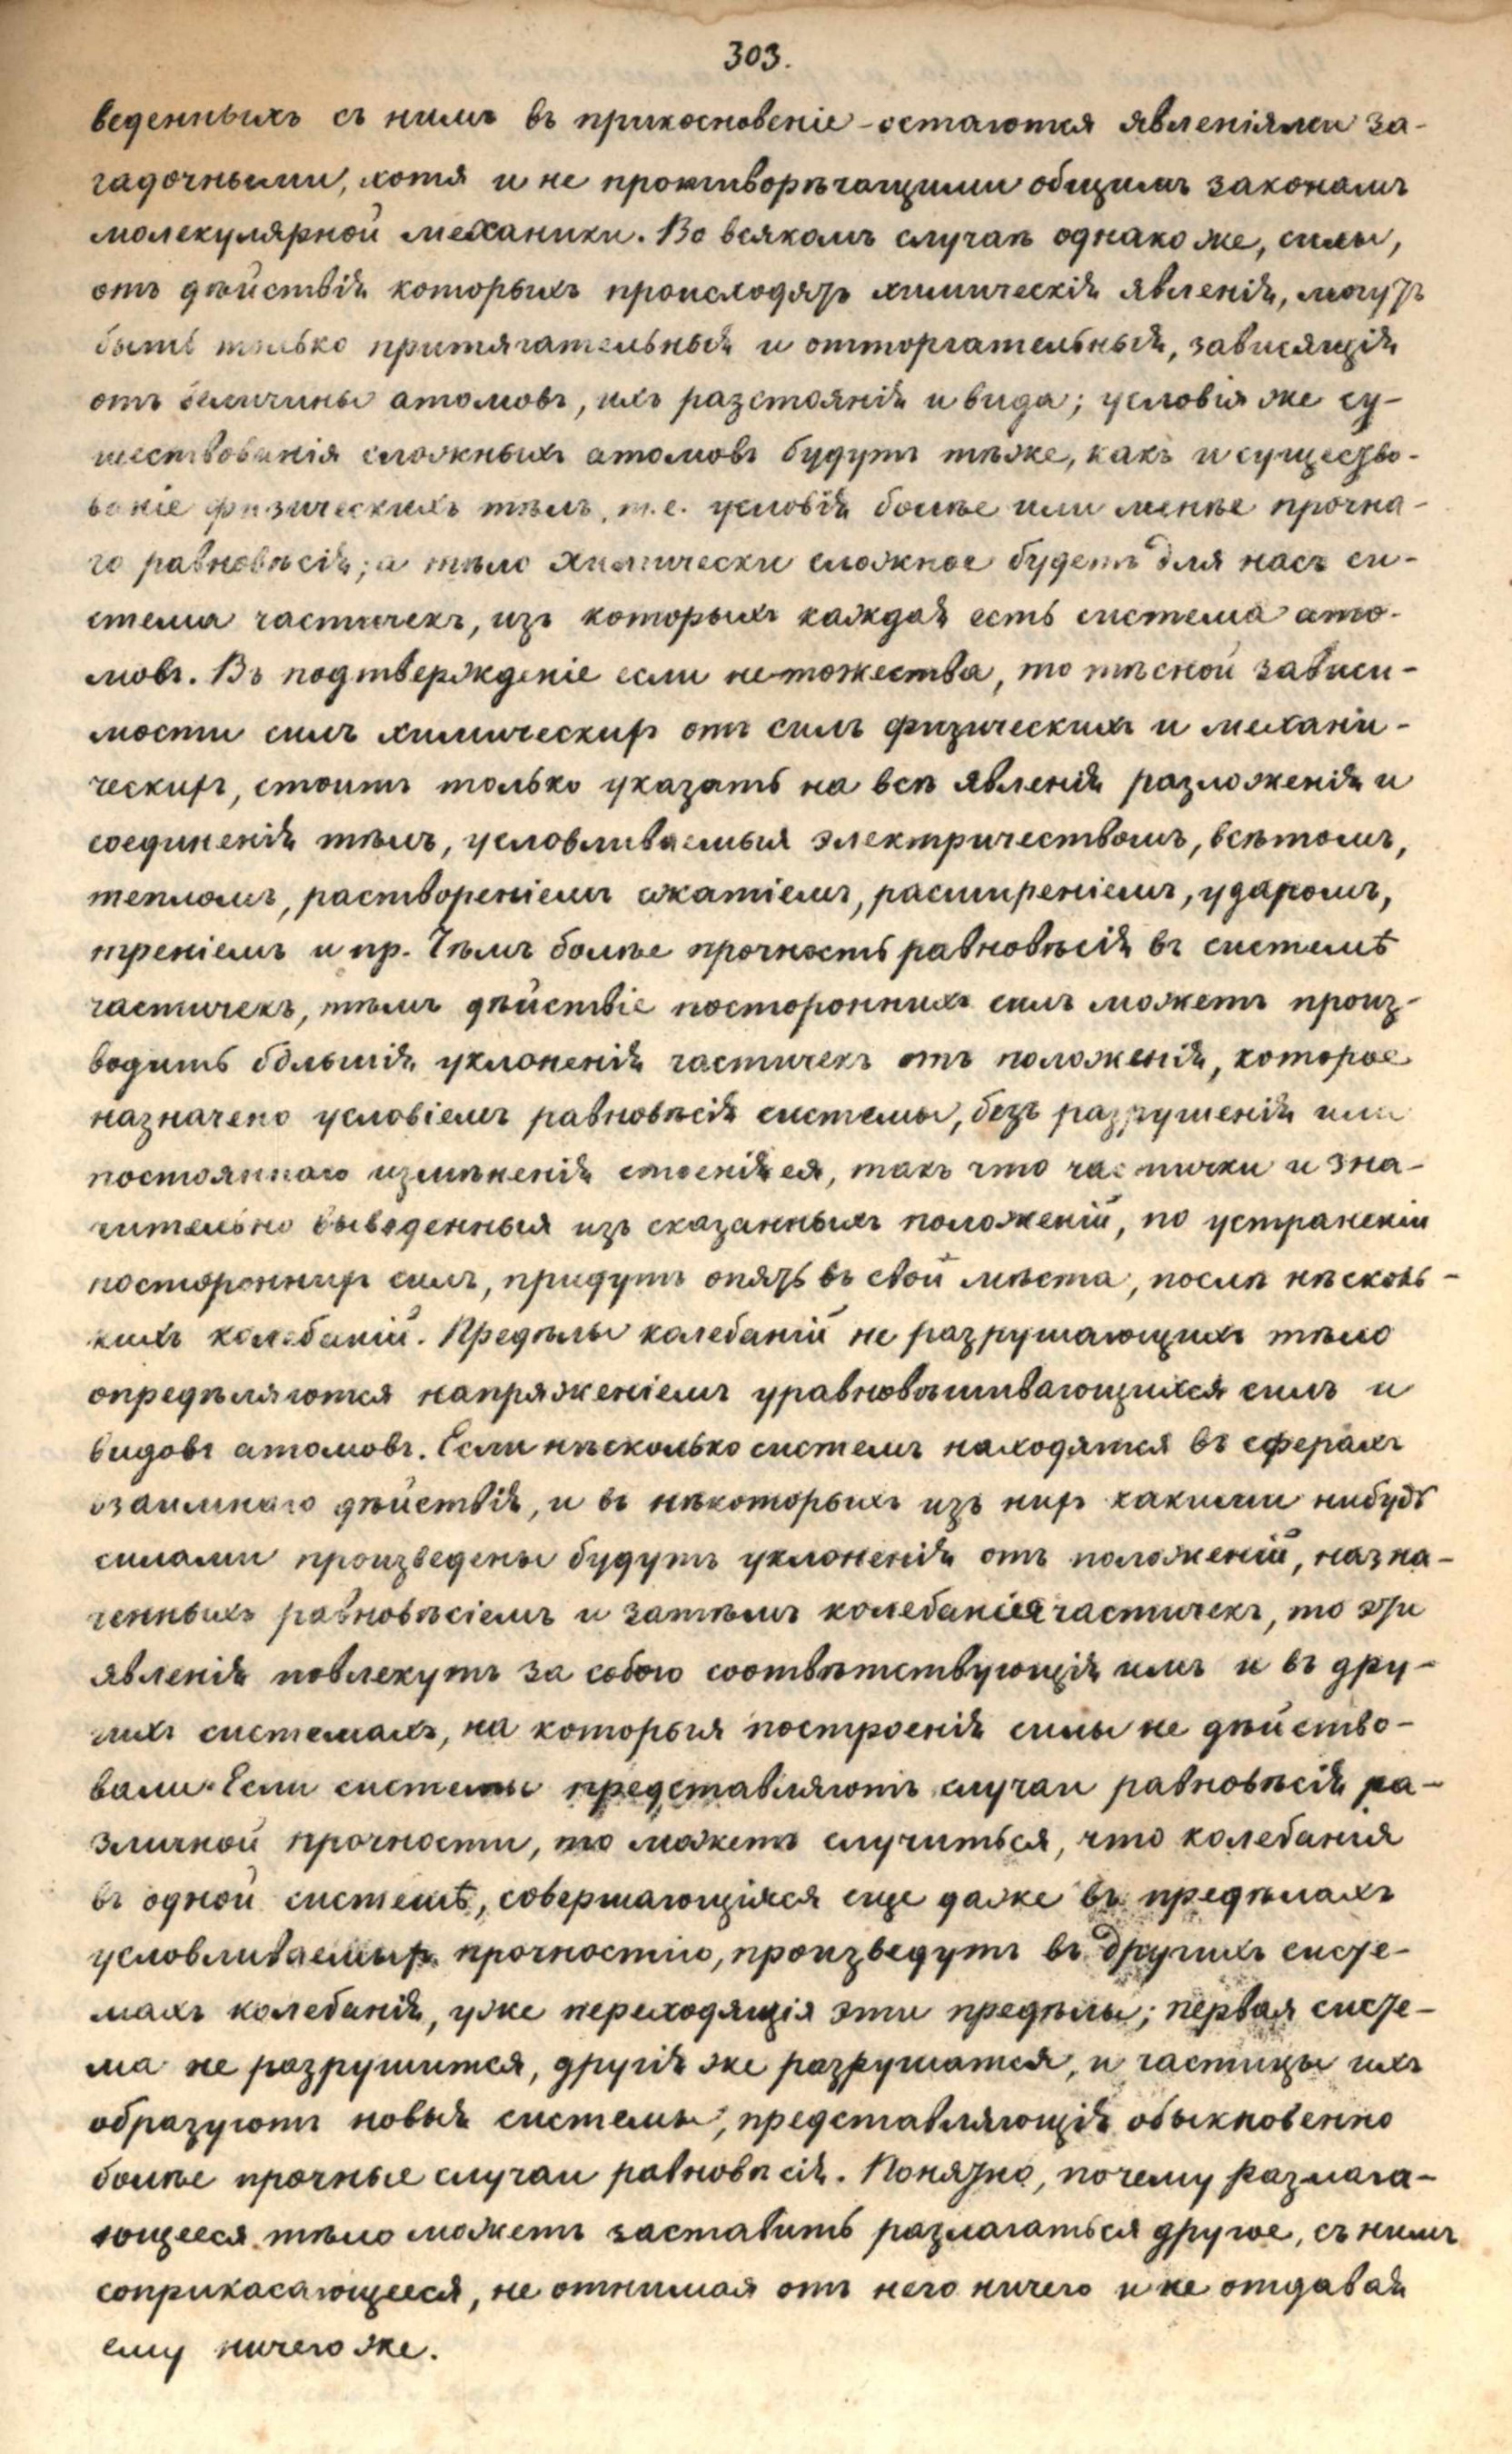 303.
веденныхъ съ нимъ въ прикосновеніе - остаются явленіями за-
гадочными, хотя и не противорѣчащими общимъ законамъ
молекулярной механики. Во всякомъ случаѣ однако же, силы,
отъ дѣйствія которыхъ происходятъ химическія явленія, могутъ
быть только притягательныя и отторгательныя, зависящія
отъ величины атомовъ, ихъ разстоянія и вида; условія же су-
шествованія сложныхъ атомовъ будутъ тѣже, какъ и существо-
ваніе физическихъ тѣлъ, т.е. условія болѣе или менѣе прочна-
го равновѣсія; а тѣло химически сложное будетъ для насъ си-
стема частичекъ, изъ которыхъ каждая есть система ато-
мовъ. Въ подтвержденіе если не тожества, то тѣсной зависи-
мости силъ химическихъ отъ силъ физическихъ и механи-
ческихъ, стоитъ только указать на всѣ явленія разложенія и
соединенія тѣлъ, условливаемыя электричествомъ, свѣтомъ,
тепломъ, раствореніемъ сжатіемъ, расширеніемъ, ударомъ,
треніемъ и пр. Чѣмъ болѣе прочность равновѣсія въ системѣ
частичекъ, тѣмъ дѣйствіе постороннихъ силъ можетъ произ-
водить бóльшія уклоненія частичекъ отъ положенія, которое
назначено условіемъ равновѣсія системы, безъ разрушенія или
постояннаго измѣненія строенія ея, такъ что частички и зна-
чительно выведенныя изъ сказанныхъ положеній, по устраненіи
постороннихъ силъ, придутъ опять въ свои мѣста, послѣ нѣсколь-
кихъ колебаній. Предѣлы колебаній не разрушающихъ тѣло
опредѣляются напряженіемъ уравновѣшивающихся силъ и
видовъ атомовъ. Если нѣсколько системъ находятся въ сферахъ
взаимнаго дѣйствія, и въ нѣкоторыхъ изъ нихъ какими нибудь
силами произведены будутъ уклоненія отъ положеній, назна-
ченныхъ равновѣсіемъ и затѣмъ колебанія частичекъ, то эти
явленія повлекутъ за собою соотвѣтствующія имъ и въ дру-
гихъ системахъ, на которыя построенія силы не дѣйство-
вали. Если системы представляютъ случаи равновѣсія ра-
зличной прочности, то можетъ случиться, что колебанія
въ одной системѣ, совершающіяся еще даже въ предѣлахъ
условливаемыхъ прочностію, произведутъ въ другихъ систе-
махъ колебанія, уже переходящія эти предѣлы; первая систе-
ма не разрушится, другія же разрушатся, и частицы ихъ
образуютъ новыя системы, представляющія обыкновенно
болѣе прочные случаи равновѣсія. Понятно, почему разлага-
ющееся тѣло можетъ заставить разлагаться другое, съ нимъ
соприкасающееся, не отнимая отъ него ничего и не отдавая
ему ничего же.